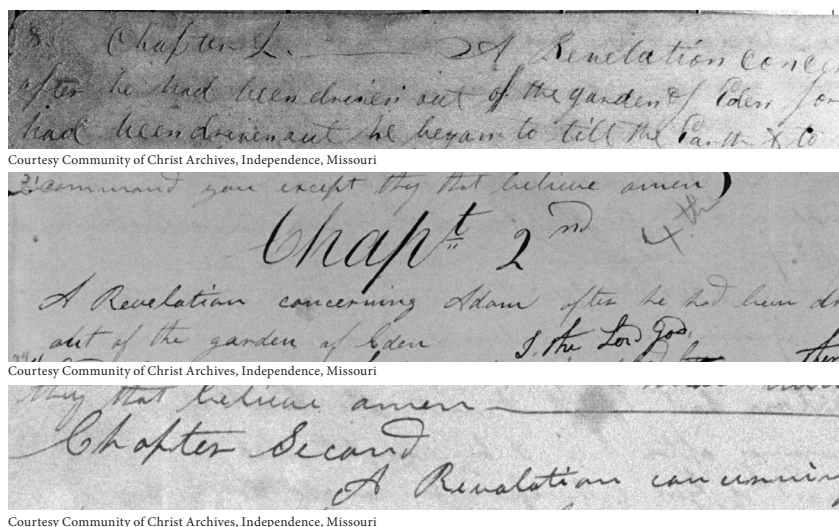 8. Chapter 2. A Revelation conce
after he had been driven out of the garden of Eden for
had been driven out he began to till the Earth & to
Courtesy Community of Christ Archives, Independence, Missouri
command you except they that believe amen)
Chapt 2nd 4th
A Revelation concerning Adam after he had been d
out of the garden of Eden I, the Lord God,
Courtesy Community of Christ Archives, Independence, Missouri
they that believe amen
Chapter Second
A Revalation concurnin
Courtesy Community of Christ Archives, Independence, Missouri